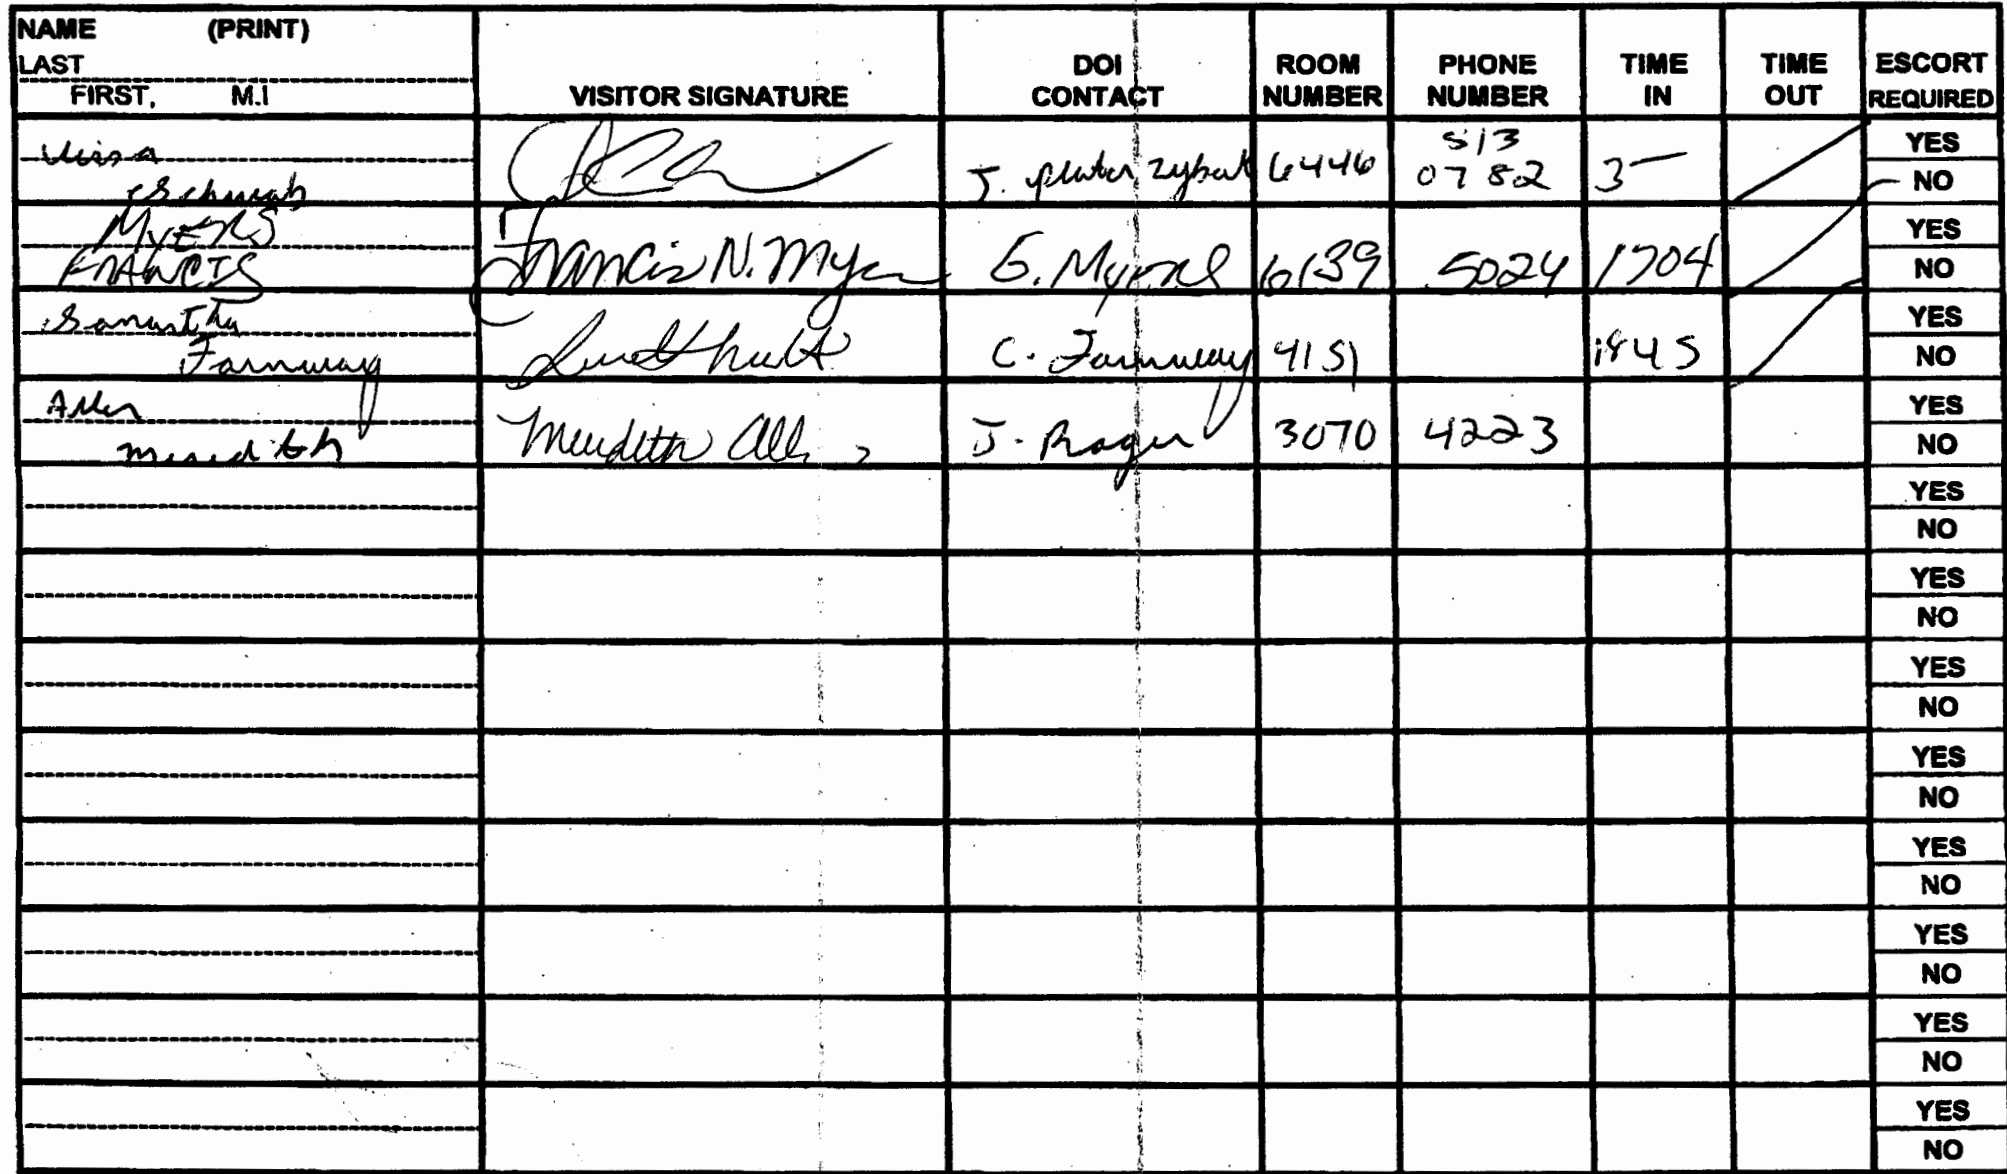 NAME (PRINT)
LAST
FIRST, M.I
VISITOR SIGNATURE
DOI CONTACT
ROOM NUMBER
PHONE NUMBER
TIME IN
TIME OUT
ESCORT REQUIRED
Schwab
J. zybek 6446 513 0782 3 YES NO
MYERS
FRANCIS Francis N. Myers G. Myers 6139 5024 1704 YES NO
Samantha
Farnway C. Farnway 4151 1845 YES NO
Allen
Meredith Meredith All J. 3070 4223 YES NO
YES
NO
YES
NO
YES
NO
YES
NO
YES
NO
YES
NO
YES
NO
YES
NO